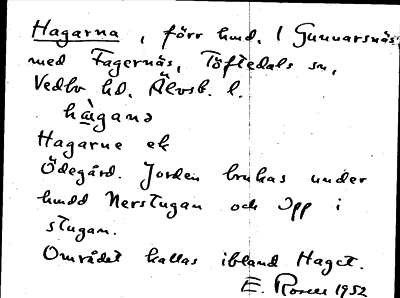 Hagarna, förr hmd. 1 Gunnarsnäs
med Fagernäs, Töftedals sn,
Vedbo hd. Älvsb. l.
hàganə
Hagarne ek
Ödegård. Jorden brukas under
hmdd Nerstugan och Opp i
stugan.
Området kallas ibland Haget.
E. Rosell 1952